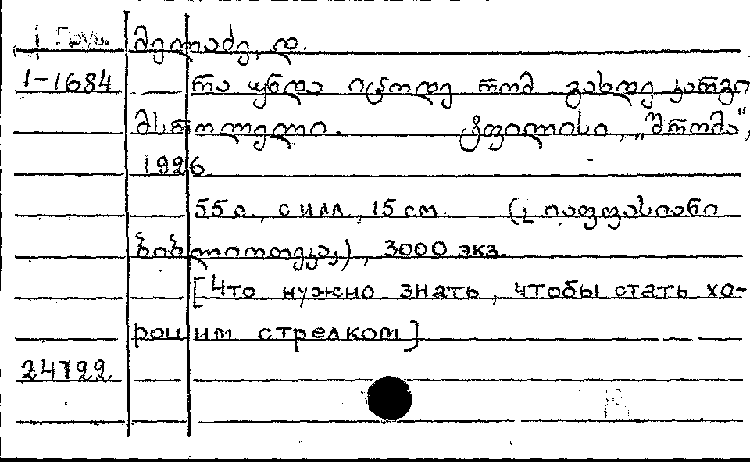 1 Груз. მელაძე, დ.
1-1684 რა უნდა იცოდე რომ გახდე კარგი
მსროლელი. ტფილისი, „შრომა",
1926.
55 с., с илл., 15 см. („იაფფასიანი
ბიბლიოთეკა„), 3000 экз.
[Что нужно знать, чтобы стать хо-
рошим стрелком]
24722